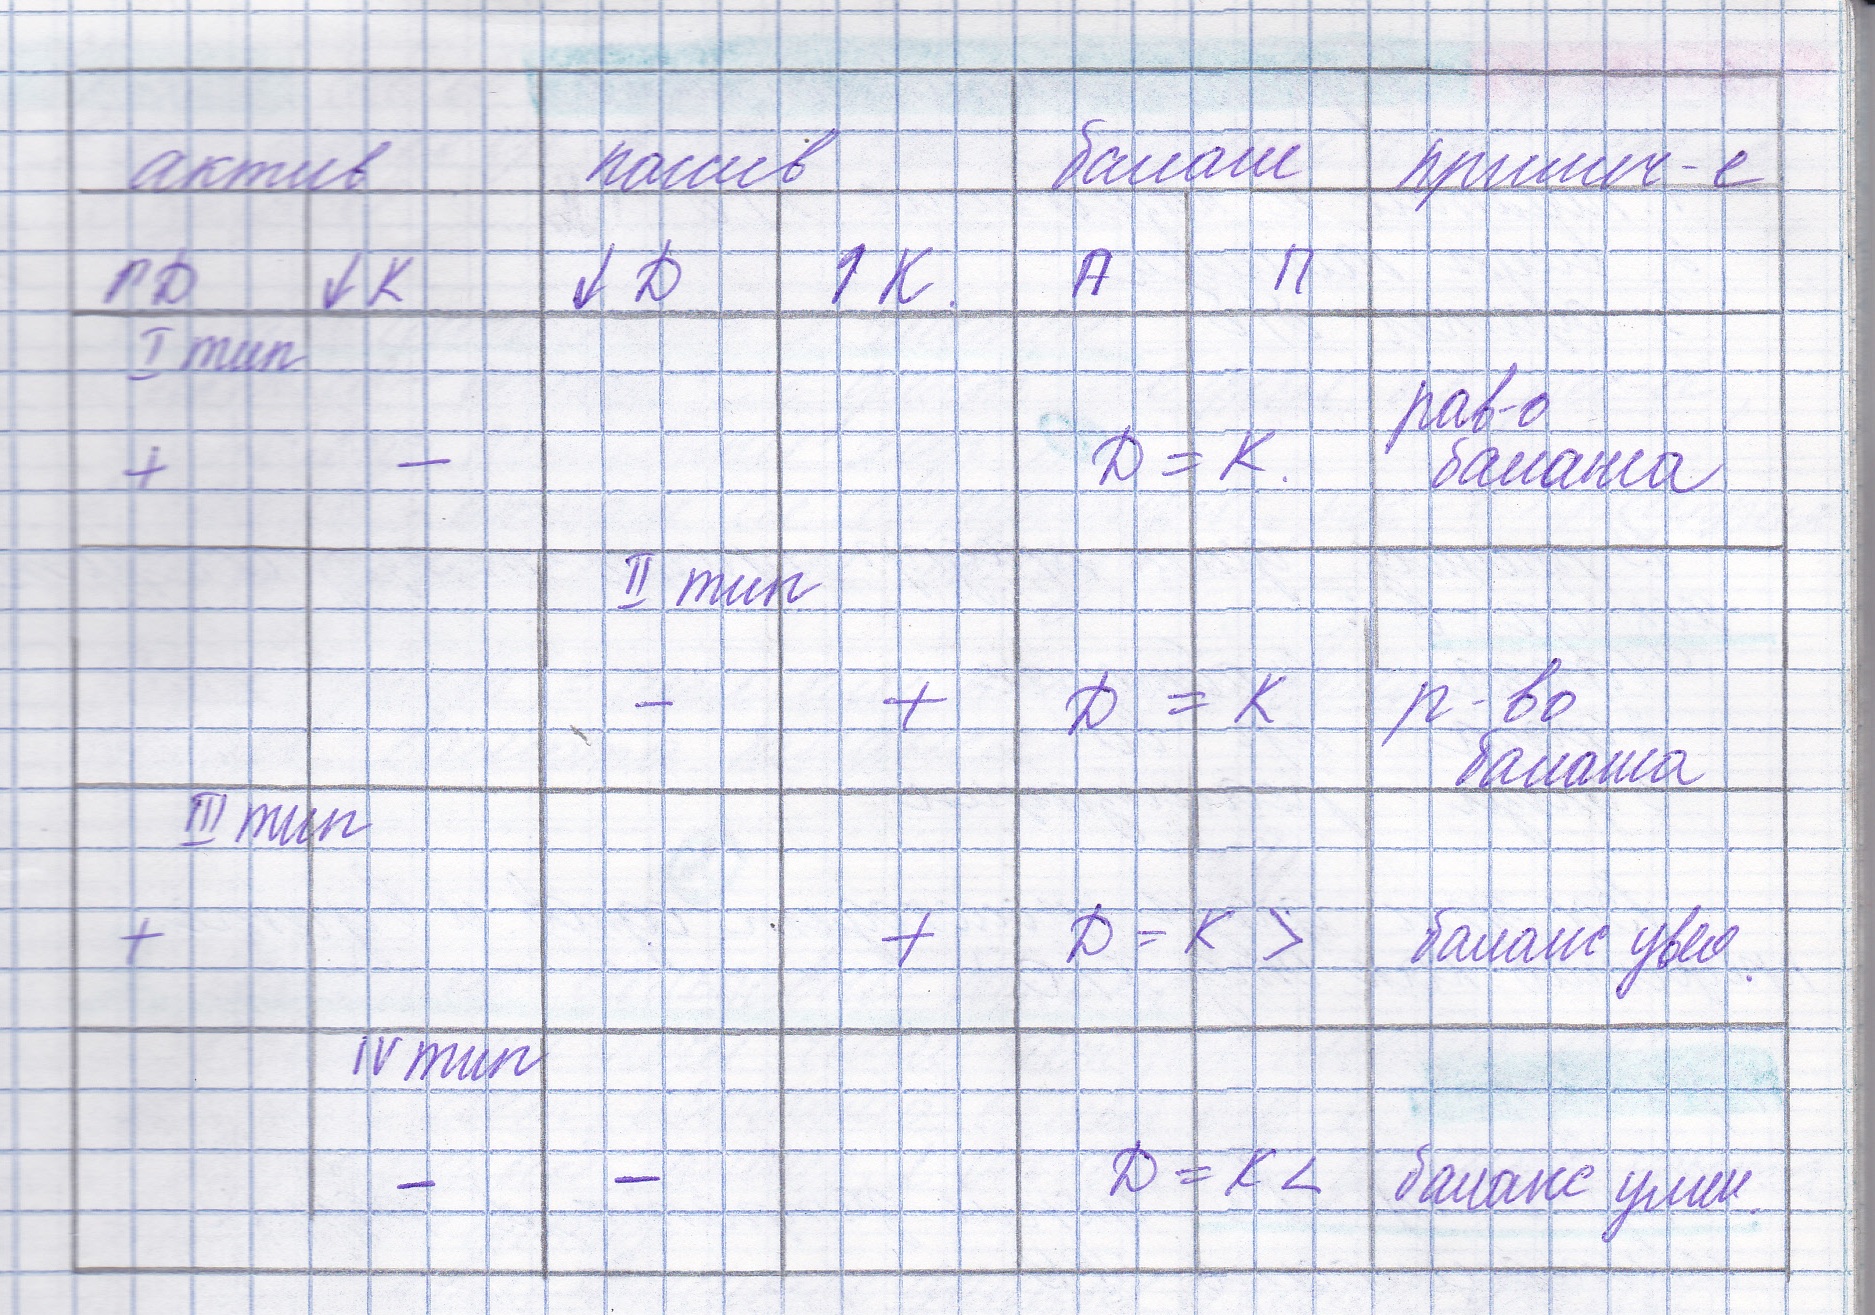 актив пассив баланс примеч-е
↑Д ↓К ↓Д ↑К. А П
I тип
рав-о
+ - Д = К. баланса
II тип
- + Д = К р-во
баланса
III тип
+ + Д = К > баланс увел.
IV тип
- - Д = К < баланс умен.